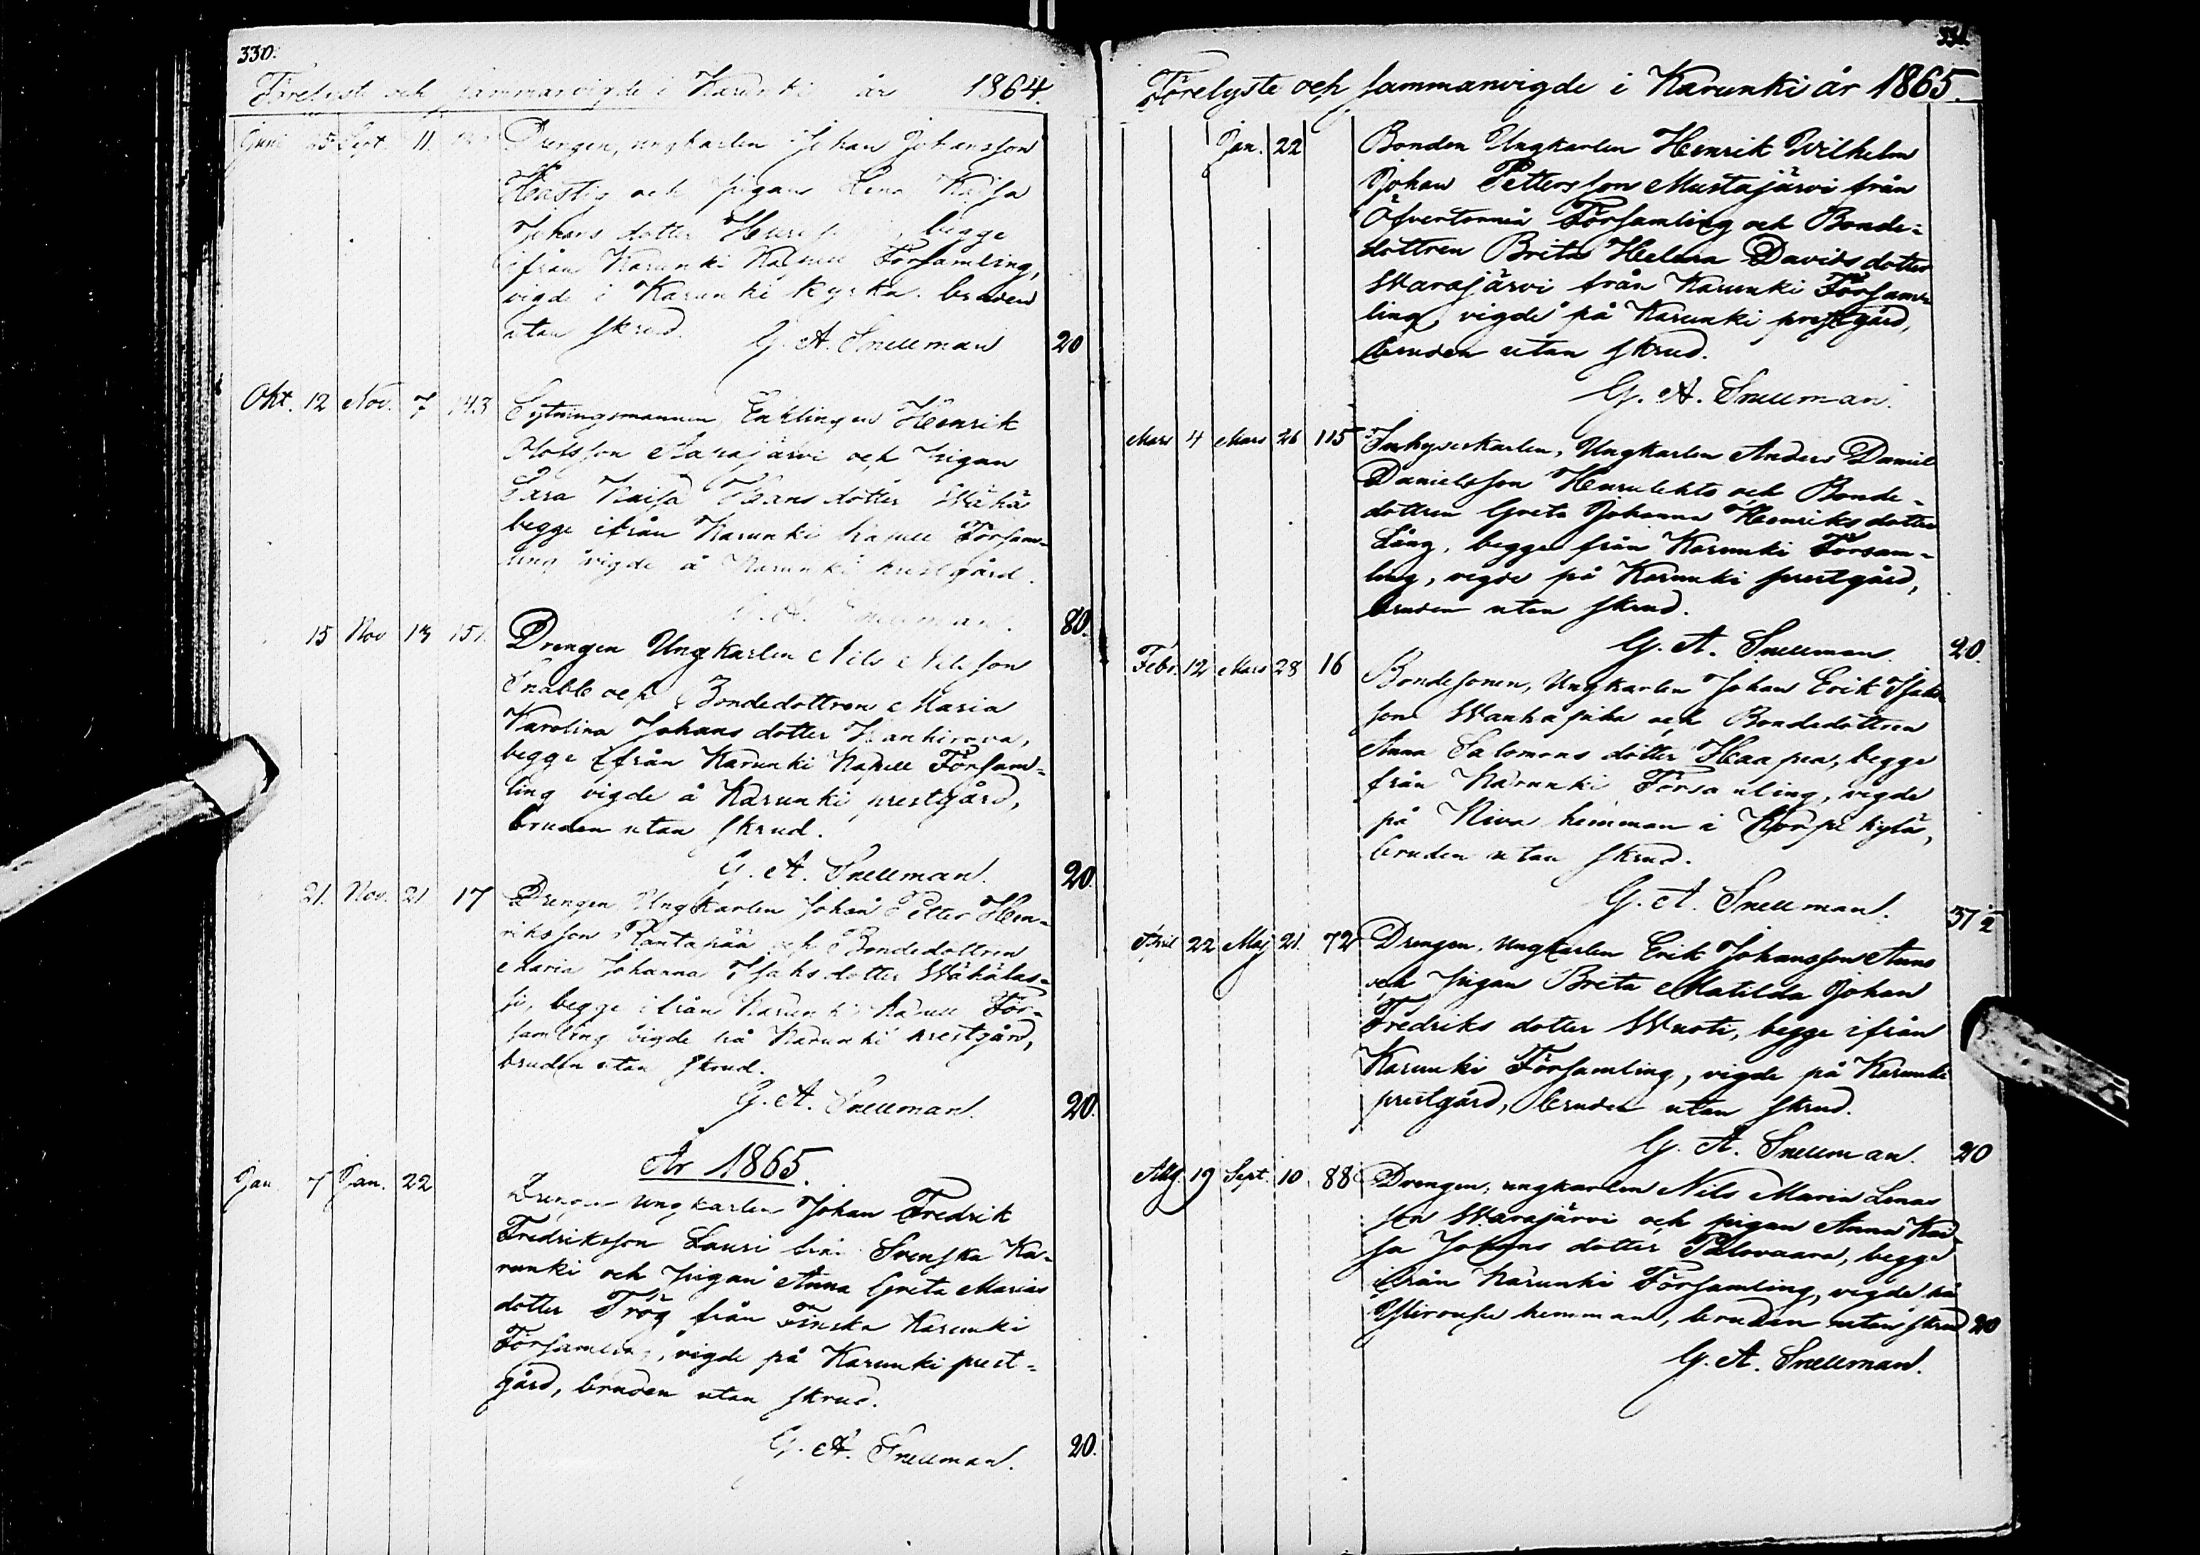 330.
Förelyste och sammanvigde i Karunki år 1864.
Juni 25 Sept. 11. Drengen, ungkarlen Johan Johansson
och pigan Lena Kajsa
Johans dotter begge
ifrån Karunki Kapell Församling,
vigde i Karunki kyrka. bruden
utan skrud. G. A. Snellman 20
Okt. 12 Nov. 7 143 Sytningsmannen, Enklingen Henrik
och Pigan
Sara Kaisa Hans dotter
begge ifrån Karunki Kapell Försam-
ling vigde å Karunki prestgård.
G. A. Snellman. 80.
15 Nov 13 151. Drengen Ungkarlen Nils Nilsson
Snabb och Bondedottren Maria
Karolina Johans dotter Kankirova,
begge ifrån Karunki Kapell Försam-
ling vigde å Karunki prestgård,
bruden utan skrud.
G. A. Snellman. 20.
21. Nov. 21 17 Drengen Ungkarlen Johan Petter Hen-
riksson Rantapää och Bondedottren
Maria Johanna Isaks dotter
begge ifrån Karunki Kapell För-
samling vigde på Karunki prestgård,
bruden utan skrud.
G. A. Snellman. 20.
År 1865.
Jan 7 Jan. 22 Drengen Ungkarlen Johan Fredrik
Fredriksson Lauri från Svenska Ka-
runki och Pigan Anna Greta Marias
dotter Trög från Finska Karunki
Församling, vigde på Karunki prest-
gård, bruden utan skrud.
G. A. Snellman. 20.
331.
Förelyste och sammanvigde i Karunki år 1865.
Jan. 22 Bonden Ungkarlen Henrik Wilhelm
Johan Pettersson Mustajärvi från
Öfvertorneå Församling och Bonde-
dottren Brita Helena Davids dotter
Warajärvi från Karunki Försam-
ling, vigde på Karunki prestgård,
bruden utan skrud.
G. A. Snellman.
Mars 4 Mars 26 115 Inhyseskarlen, Ungkarlen Anders Daniel
Danielsson Hurulehto och Bonde-
dottren Greta Johanna Henriks dotter
Lång, begge från Karunki Försam-
ling, vigde på Karunki prestgård,
bruden utan skrud.
G. A. Snellman 20.
Febr. 12 Mars 28 16 Bondesonen, Ungkarlen Johan Erik Isaks
son Wanhapiha och Bondedottren
Anna Salomons dotter Haapea, begge
från Karunki Församling, vigde
på Niva hemman i Korpikylä,
bruden utan skrud.
G. A. Snellman. 37 1/2
April 22 Maj 21. 72 Drengen, Ungkarlen Erik Johansson Anno
och Pigan Brita Matilda Johan
Fredriks dotter Wuoti, begge ifrån
Karunki Församling, vigde på Karunki
prestgård, bruden utan skrud.
G. A. Snellman. 20
Aug. 19 Sept. 10 88 Drengen, ungkarlen Nils Maria Lenas
son Warajärvi och pigan Anna Kai-
sa Johans dotter Palovaara, begge
ifrån Karunki Församling, vigde på
hemman, bruden utan skrud 20
G. A. Snellman.